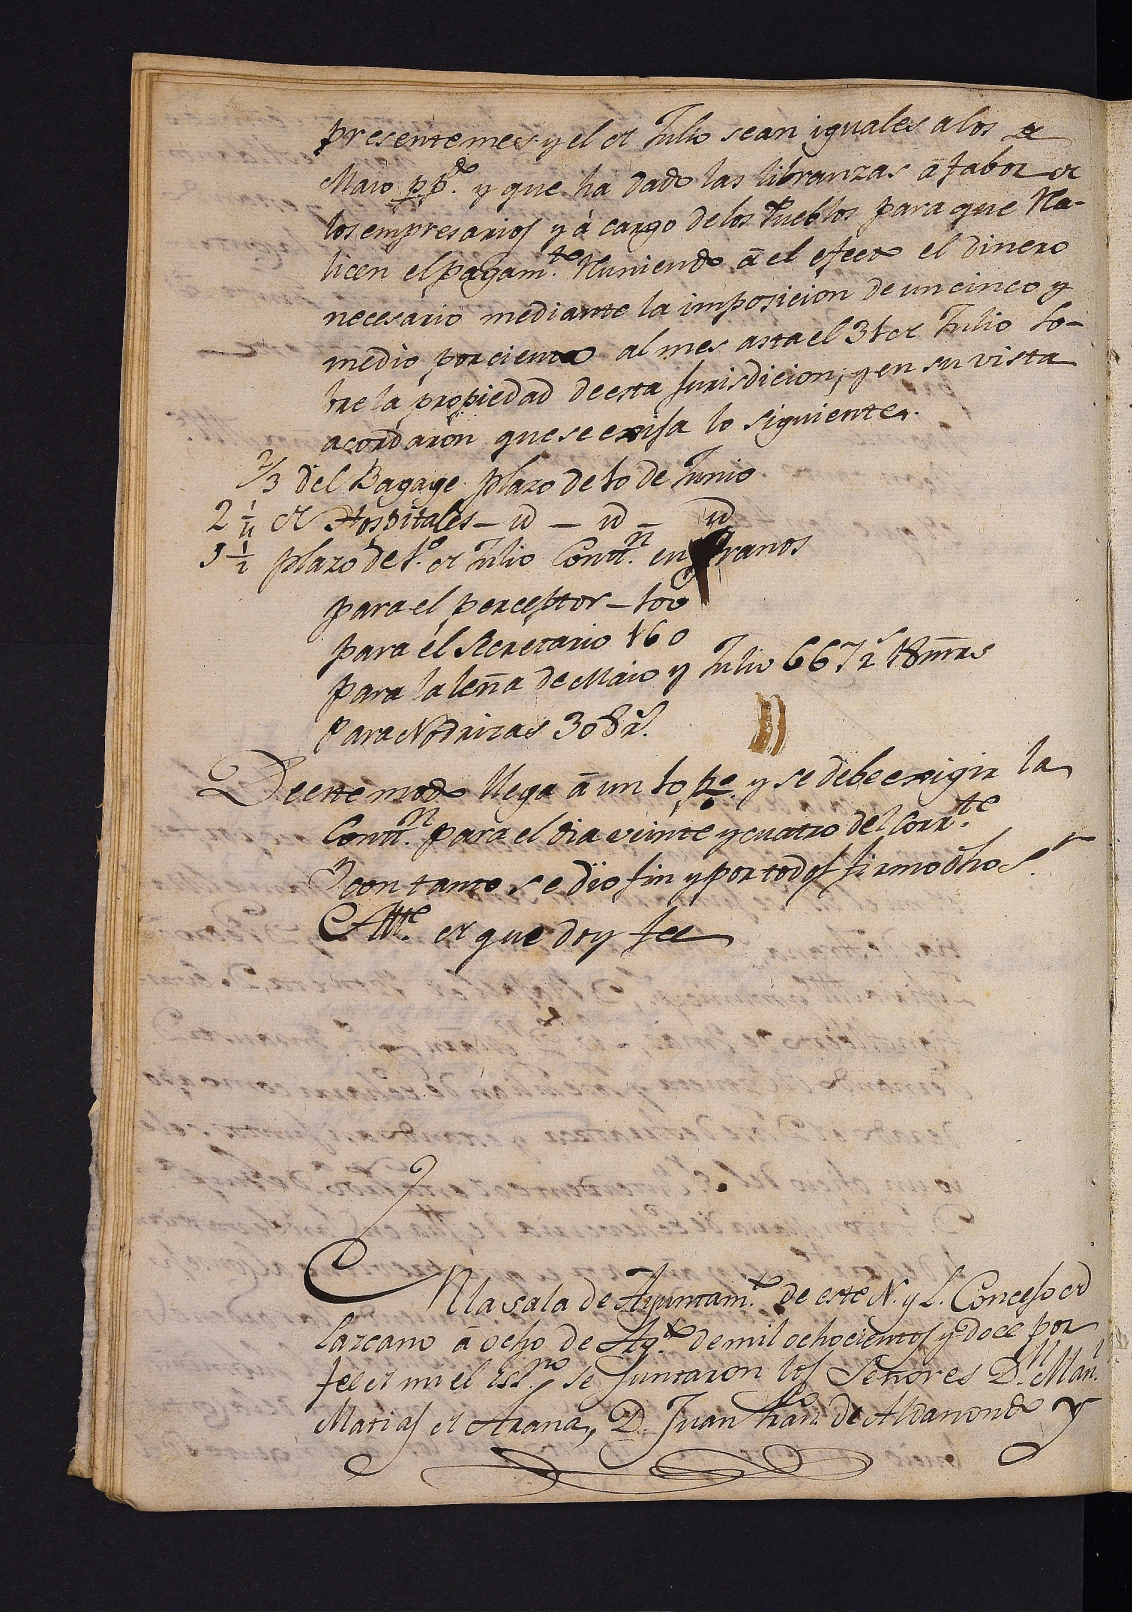 presente mes y el de Julio sean iguales a los de
Maio pp.do y que ha dado las libranzas â fabor de
los empresarios y à cargo de los Pueblos para que Rea-
licen el pagam.to Runiendo â el efecto el dinero
necesario mediante la imposicion de un cinco y
medio por ciento al mes asta el 31 de Julio so-
bre la propiedad de esta Jurisdicion, y en su vista
acordaron que se exija lo siguiente.
2/3 del Bagage plazo de 10 de Junio
2 1/4 de Hospitales - id - id - id
5 1/2 plazo de 1.o de Julio Cont.n en Granos
para el perceptor - 100
para el Secretario 160
para la leña de Maio y Julio 667 r.s 18 mrs
Para Nodrizas 308 r.s
De este modo llega â un 10 p.o y se debe exigir la
Cont.n para el dia veinte y cuatro del Corr.te
Y con tanto se dio fin y por todos firmo dho S.r
Alc.e de que doy fee
EN la sala de Ayuntam.to de este N. y L. Concejo de
Lazcano â ocho de Ag.to de mil ochocientos y doce por
fee de mi el Ess.no se juntaron los Señores D.n Man.l
Matias de Arana, D. Juan Fran.co de Aldanondo y